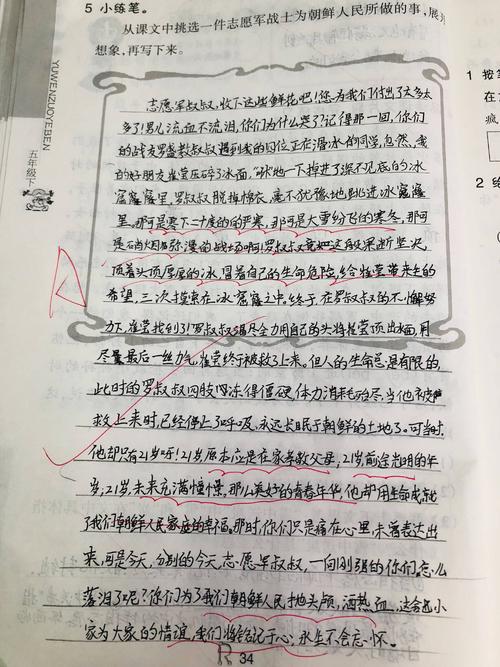 5 小练笔。
从课文中挑选一件志愿军战士为朝鲜人民所做的事，展
想象，再写下来。
志愿军叔叔，收下这些鲜花吧！您为我们付出了太多太
多了！男儿流血不流泪，你们为什么哭了？记得那一回，你们
的战友罗盛教叔叔遇到我的四位正在溜冰的同学，忽然，我
的好朋友崔莹压碎了冰面，"砰"地一下掉进了深不见底的冰
窟窿里，罗叔叔脱掉棉衣，毫不犹豫地跳进冰窟窿
里，那可是零下二十度的严寒，那可是大雪纷飞的寒冬，那可
是硝烟弥漫的战场啊！罗叔叔竟如此果断坚决，
顶着头顶厚厚的冰，冒着自己的生命危险，给崔莹带来生的
希望，三次摸索在冰窟窿之中，终于在罗叔叔的不懈努
力下，崔莹找到了！罗叔叔竭尽全力用自己的头将崔莹顶出水面，用
尽最后一丝力气，崔莹终于被救了上来。但人的生命总是有限的，
此时的罗叔叔四肢已冻得僵硬，体力消耗殆尽，当他被
救上来时，已经停止了呼吸，永远长眠于朝鲜的土地了。可当时，
他却只有21岁呀！21岁，原本应是在家孝敬父母，21岁，前途光明的年
岁，21岁，未来充满憧憬，那么美好的青春年华，他却用生命成就
了我们朝鲜人民家庭的幸福。那时，你们只是痛在心里，未曾表达出
来，可是今天，分别的今天，志愿军叔叔，一向刚强的你们，怎么
落泪了呢？你们为了我们朝鲜人民抛头颅，洒热血，这舍小
家为大家的情谊，我们将铭记于心，永生不会忘怀。
34
YUWENZUOYEBEN
五年级下
1 按
在
疯
2 给